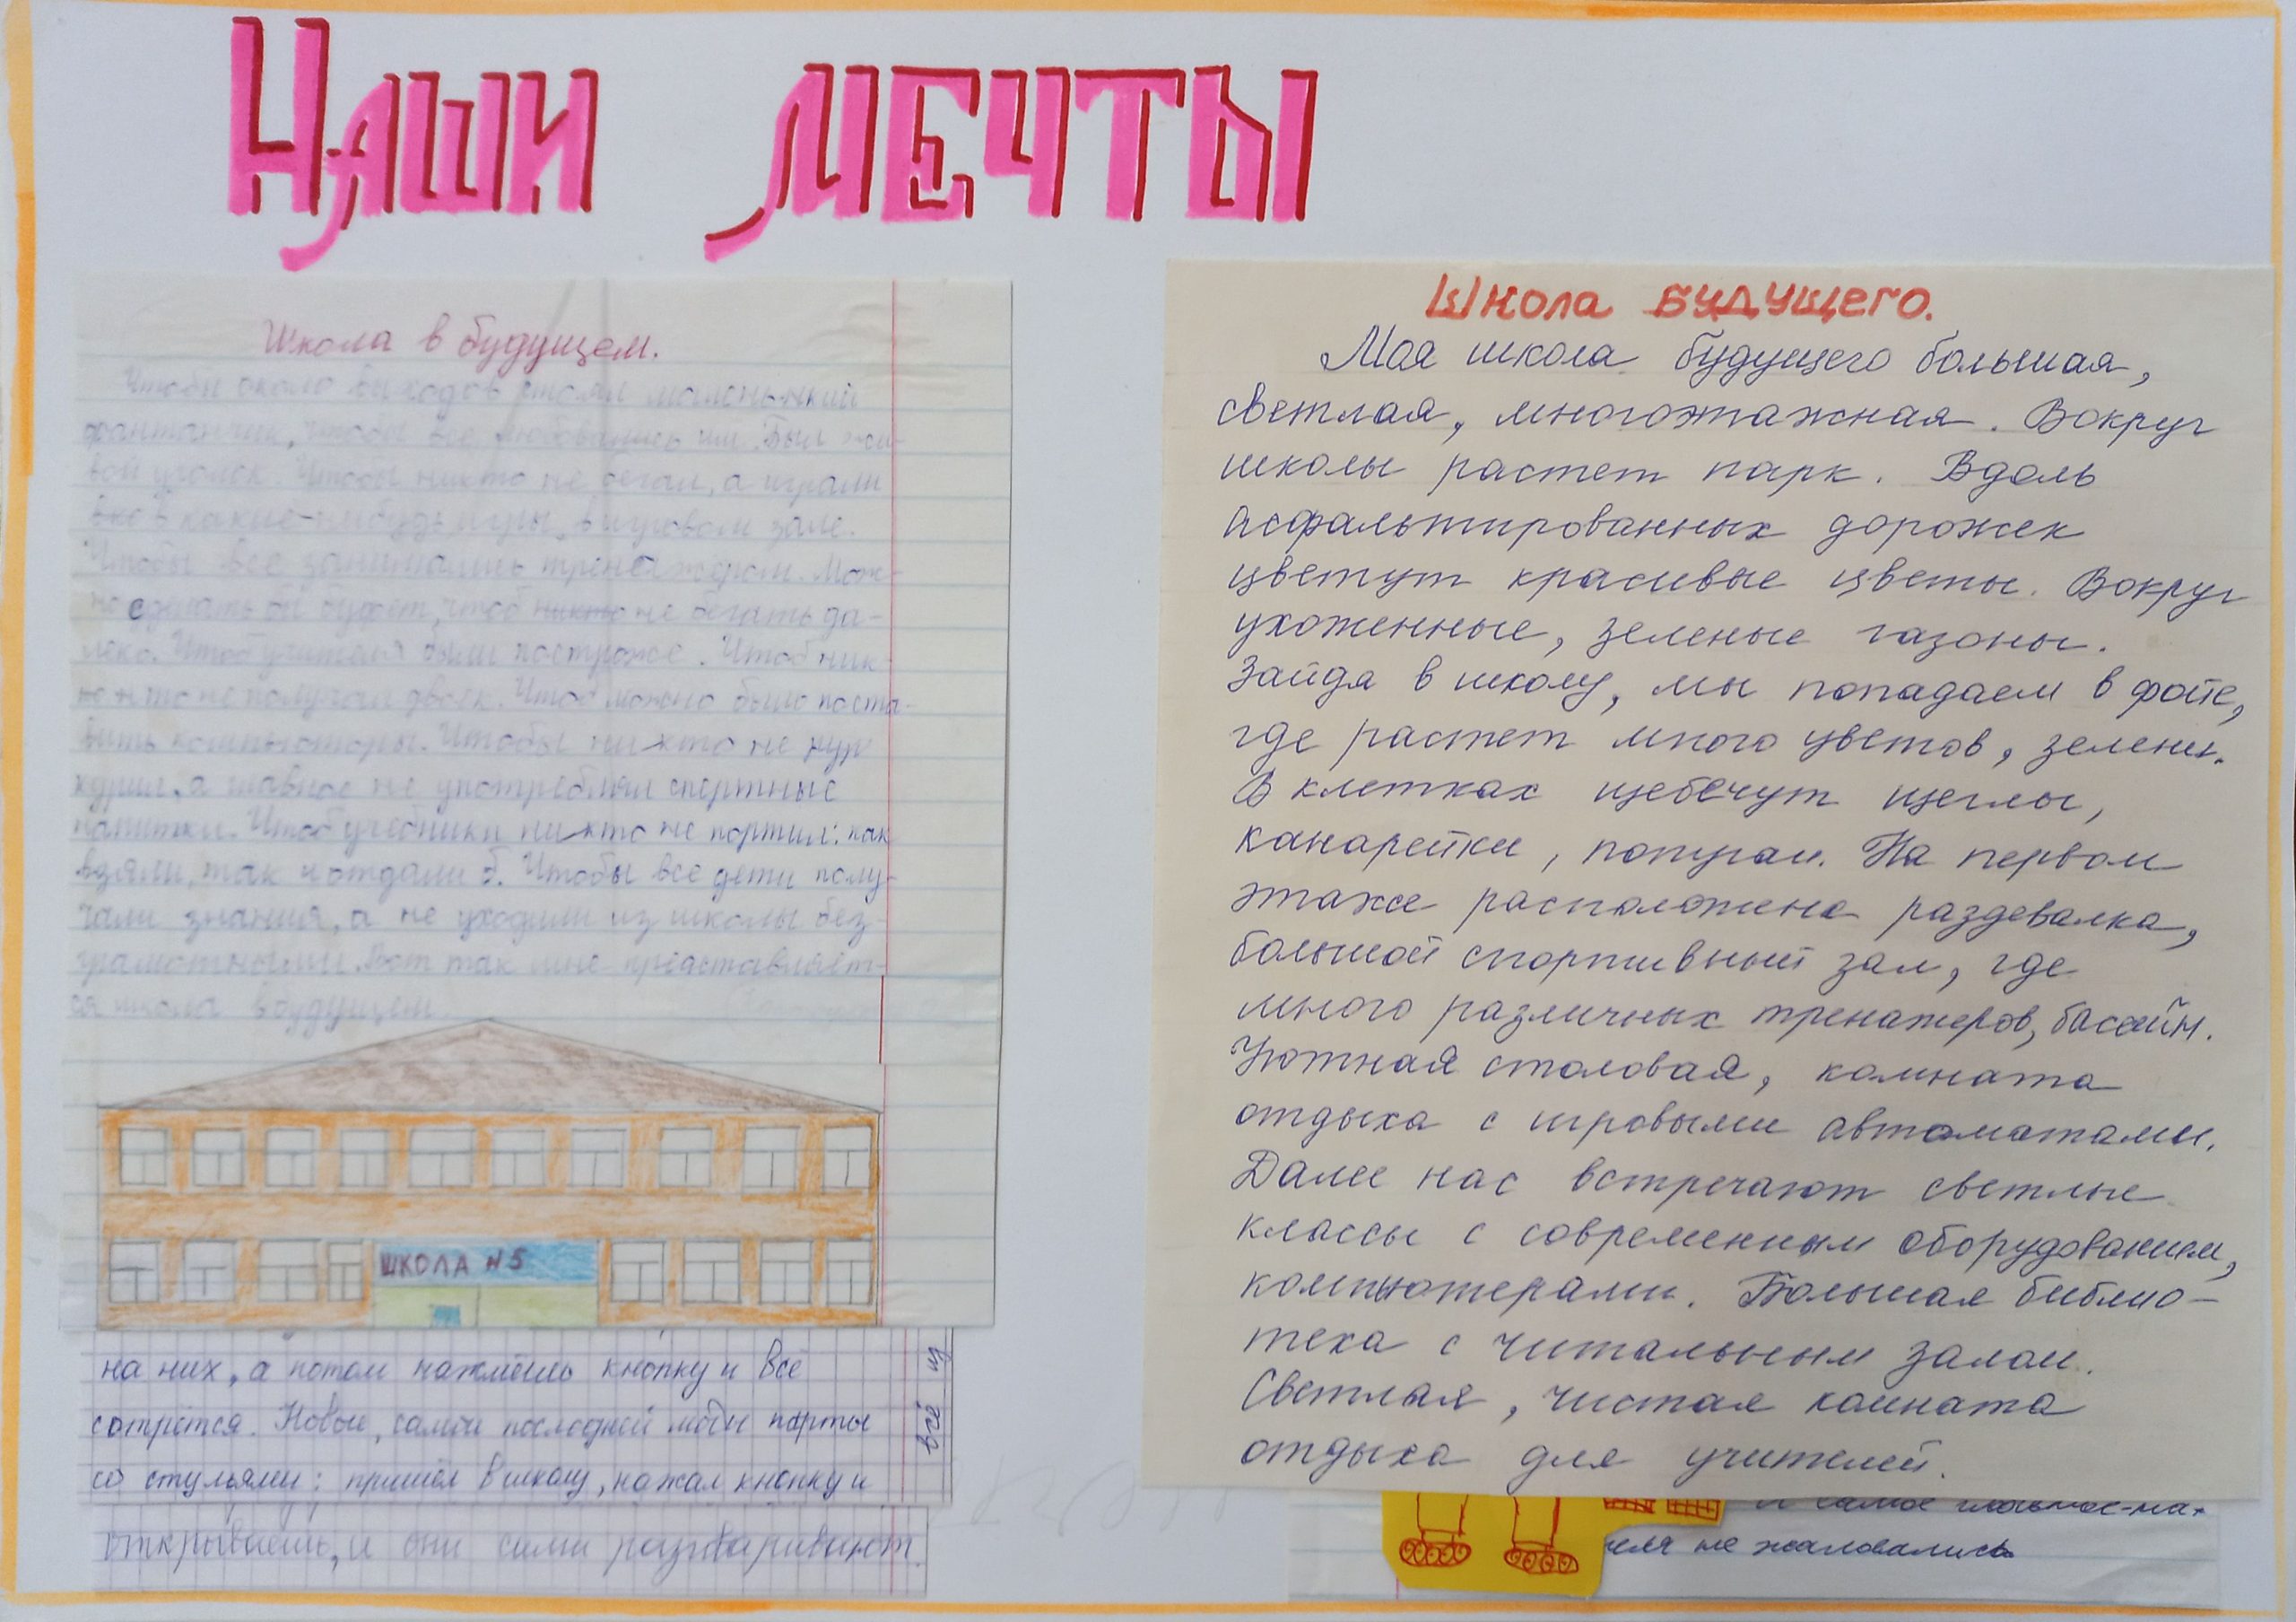 Наши мечты
Школа в будущем.
Чтобы около выходов стоял маленький
фонтанчик, чтобы все любовались им. Был жи-
вой уголок. Чтобы никто не бегал, а играли
все в какие-нибудь игры, в игровом зале.
Чтобы все занимались тренажёром. Мож-
но сделать бы буфет, чтоб не бегать да-
леко. Чтоб учителя были построже. Чтоб ник-
то не получал двоек. Чтоб можно было поста-
вить компьютеры. Чтобы ни кто не
курил, а главное не употреблял спиртные
напитки. Чтоб учебники ни кто не портил: как
взяли, так и отдали б. Чтобы все дети полу-
чали знания, а не уходили из школы без-
грамотными. Вот так мне представляет-
ся школа в будущем.
ШКОЛА N5
на них, а потом нажмёшь кнопку и всё
сотрётся. Новые, самой последней моды парты
со стульями: пришёл в школу, нажал кнопку и
всё из
открываешь, и они сами разговаривают.
Школа будущего.
Моя школа будущего большая,
светлая, многоэтажная. Вокруг
школы растет парк. Вдоль
асфальтированных дорожек
цветут красивые цветы. Вокруг
ухоженные, зеленые газоны.
Зайдя в школу, мы попадаем в фойе,
где растет много цветов, зелени.
В клетках щебечут щеглы,
канарейки, попугаи. На первом
этаже расположена раздевалка,
большой спортивный зал, где
много различных тренажеров, бассейн.
Уютная столовая, комната
отдыха с игровыми автоматами.
Далее нас встречают светлые
классы с современным оборудованием,
компьютерами. Большая библио-
тека с читальным залом.
Светлая, чистая комната
отдыха для учителей.
и самое главное-на-
не жаловались